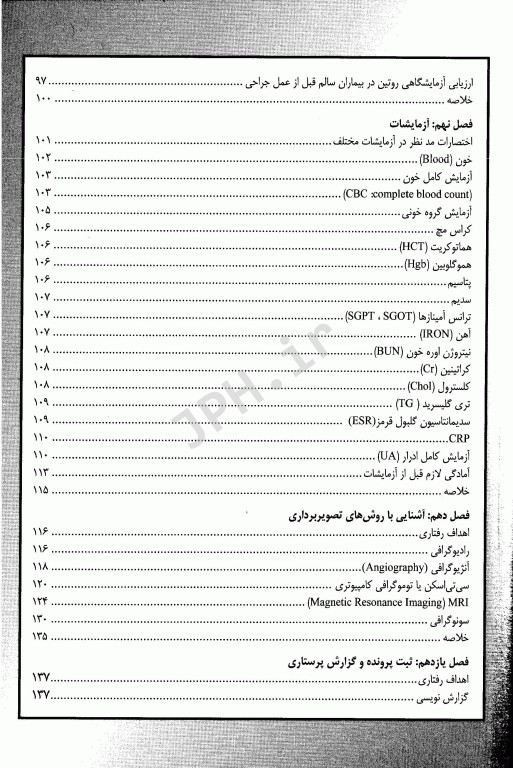 ارزیابی آزمایشگاهی روتین در بیماران سالم قبل از عمل جراحی ........ ۹۷
خلاصه ........ ۱۰۰
فصل نهم: آزمایشات
اختصارات مد نظر در آزمایشات مختلف ........ ۱۰۱
خون (Blood) ........ ۱۰۲
آزمایش کامل خون ........ ۱۰۳
(CBC :complete blood count) ........ ۱۰۳
آزمایش گروه خونی ........ ۱۰۵
کراس مچ ........ ۱۰۶
هماتوکریت (HCT) ........ ۱۰۶
هموگلوبین (Hgb) ........ ۱۰۶
پتاسیم ........ ۱۰۶
سدیم ........ ۱۰۷
ترانس آمینازها (SGPT ، SGOT) ........ ۱۰۷
آهن (IRON) ........ ۱۰۷
نیتروژن اوره خون (BUN) ........ ۱۰۸
کراتینین (Cr) ........ ۱۰۸
کلسترول (Chol) ........ ۱۰۸
تری گلیسرید ( TG) ........ ۱۰۹
سدیمانتاسیون گلبول قرمز(ESR) ........ ۱۰۹
CRP ........ ۱۱۰
آزمایش کامل ادرار (UA) ........ ۱۱۰
آمادگی لازم قبل از آزمایشات ........ ۱۱۳
خلاصه ........ ۱۱۵
فصل دهم: آشنایی با روش‌های تصویربرداری
اهداف رفتاری ........ ۱۱۶
رادیوگرافی ........ ۱۱۶
آنژیوگرافی (Angiography) ........ ۱۱۸
سی‌تی‌اسکن یا توموگرافی کامپیوتری ........ ۱۲۰
(Magnetic Resonance Imaging) MRI ........ ۱۲۴
سونوگرافی ........ ۱۳۰
خلاصه ........ ۱۳۵
فصل یازدهم: ثبت پرونده و گزارش پرستاری
اهداف رفتاری ........ ۱۳۷
گزارش نویسی ........ ۱۳۷
JPH.ir